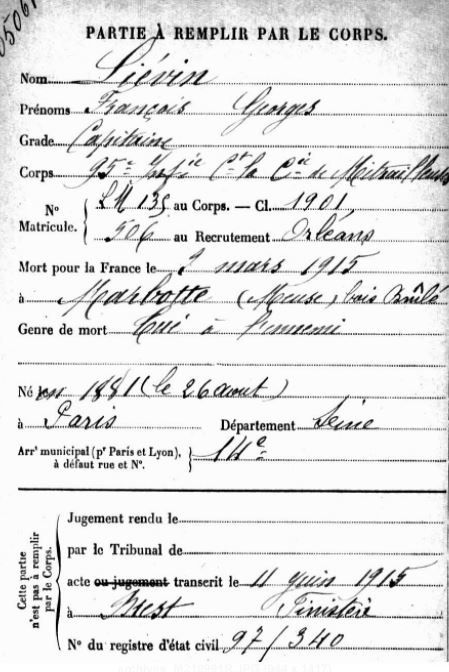 PARTIE À REMPLIR PAR LE CORPS.
Nom Liévin
Prénoms François Georges
Grade Capitaine
Corps 95e Infie Ct la Cie de Mitrailleuses
No Matricule. { LM 135 au Corps. — Cl. 1901
506 au Recrutement Orléans
Mort pour la France le 2 mars 1915
à Marbotte (Meuse) bois Brûlé
Genre de mort Tué à l'ennemi
Né en 1881 (le 26 aout)
à Paris Département Seine
Arrt municipal (pr Paris et Lyon), à défaut rue et No. } 14e
Cette partie n'est pas à remplir par le Corps.
Jugement rendu le
par le Tribunal de
acte ou jugement transcrit le 11 juin 1915
à Brest Finistère
No du registre d'état civil 97/340